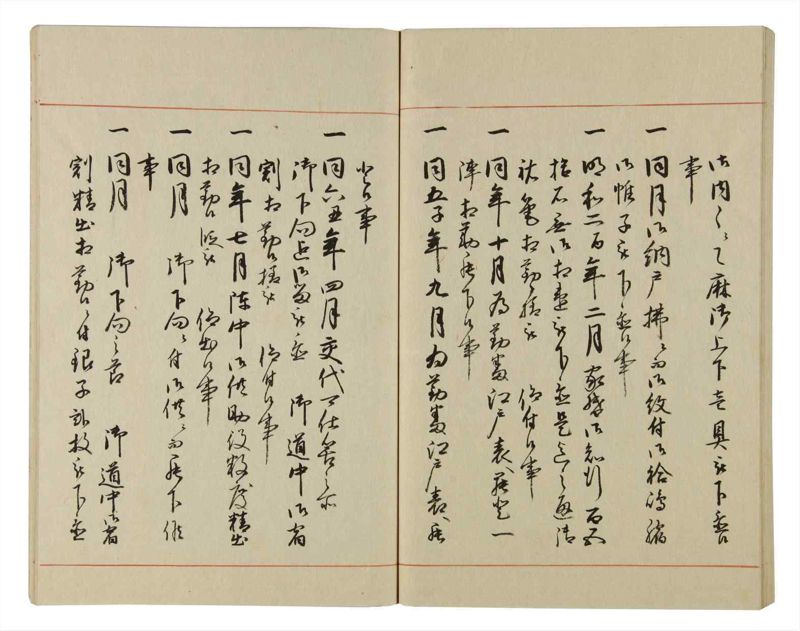 御内々ニて麻御上下壱具被下置候
事
一 同月御納戸拂ニ而御紋付御袷嶋縮
御帷子被下置候事
一 明和二酉年二月家督御知行百五
拾石無御相違被下置是迄之通御
被 相勤様被 仰付候事
一 同年十月為勤番江戸表罷登一
陣相勤罷下候事
一 同五子年九月為勤番江戸表罷
登候事
一 同六丑年四月交代可仕筈之所
御下向迄御留被置 御道中御省
割相勤候様被 仰付候事
一 同年七月陣中御供助役数度精出
相勤候段被 仰出候事
一 同月 御下向之節御供ニ而罷下候
事
一 同月 御下向之節 御道中御省
割精出相勤候ニ付銀子弐枚被下置